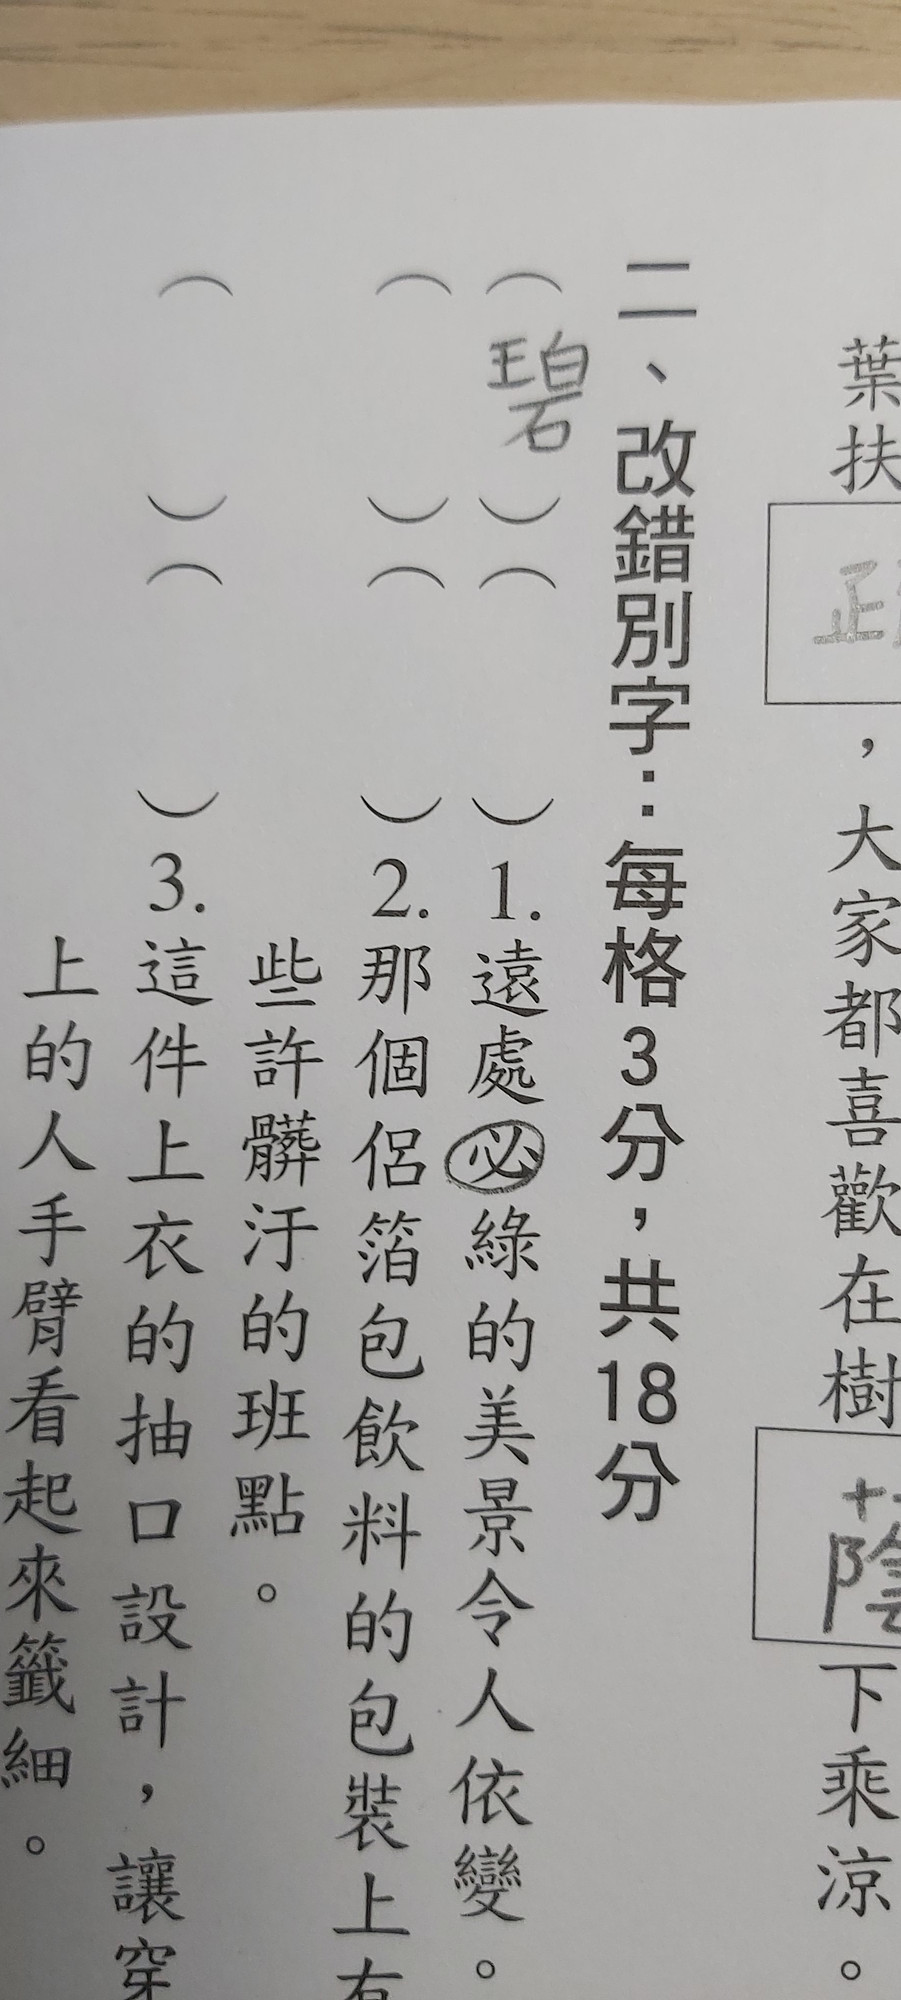 葉扶，大家都喜歡在樹蔭下乘涼。
二、改錯別字：每格3分，共18分
（碧）（　）1.遠處必綠的美景令人依變。
（　）（　）2.那個侶箔包飲料的包裝上有
些許髒汙的班點。
（　）（　）3.這件上衣的抽口設計，讓穿
上的人手臂看起來籤細。